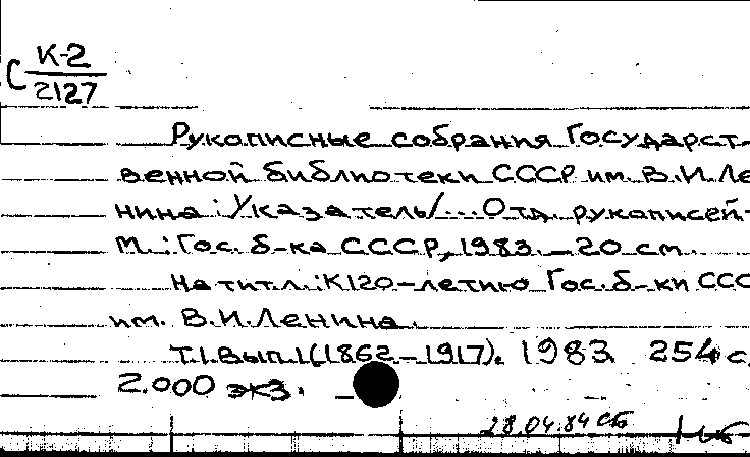 С К-2
2127
Рукописные собрания Государст-
венной библиотеки СССР им. В.И.Ле
нина: Указатель/...Отд. рукописей.-
М.: Гос. б-ка СССР, 1983.-20 см.
На тит.л.: К 120-летию Гос. б-ки ССС
им. В.И.Ленина.
Т.1.Вып.1(1862-1917). 1983 254 с.
2.000 экз. -
28.04.84